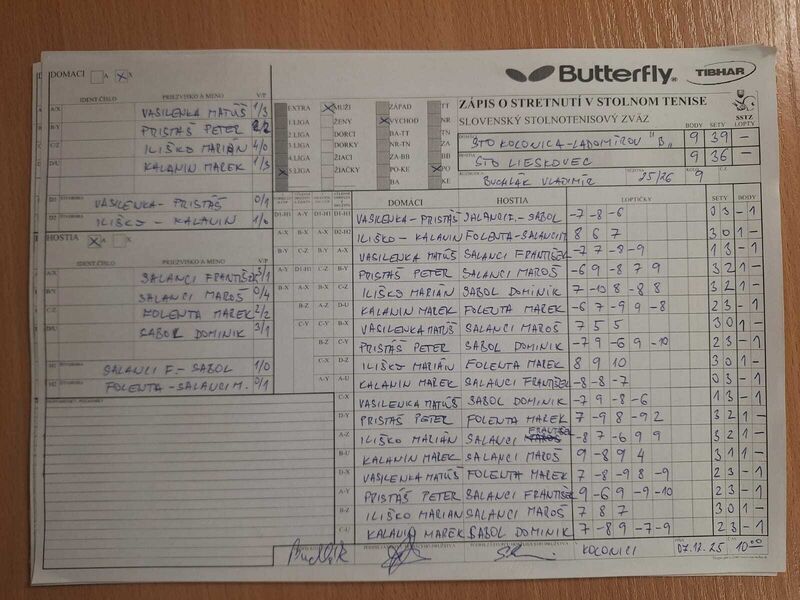 DOMACI A X
Butterfly
TIBHAR
IDENT.ČÍSLO PRIEZVISKO A MENO V/P
A/X VASILENKA MATÚŠ 1/3
B/Y PRISTÁŠ PETER 2/2
C/Z ILIŠKO MARIÁN 4/0
D/U KALANIN MAREK 1/3
D1 VASILENKA - PRISTÁŠ 0/1
D2 ILIŠKO - KALANIN 1/0
HOSTIA A X
IDENT.ČÍSLO PRIEZVISKO A MENO V/P
A/X SALANCI FRANTIŠEK 3/1
B/Y SALANCI MAROŠ 0/4
FOLENTA MAREK 2/2
D/U SABOL DOMINIK 3/1
SALANCI F.- SABOL 1/0
FOLENTA - SALANCI M. 0/1
EXTRA MUŽI ZÁPAD TT
I.LIGA ŽENY VÝCHOD NR
LIGA DORCI BA-TT TN
LIGA DORKY NR-TN ZA
LIGA ŽIACI ZA-BB BB
LIGA ŽIAČKY PO-KE PO
BA KE
ZÁPIS O STRETNUTÍ V STOLNOM TENISE
SLOVENSKÝ STOLNOTENISOVÝ ZVÄZ
SSTZ
BODY SETY LOPTY
STO KOLONICA-LADOMÍROV "B" 9 39 -
STO LIESKOVEC 9 36 -
BUCHLÁK VLADIMÍR 25/26 9
DOMÁCI HOSTIA LOPTIČKY SETY BODY
D1-H1 A-Y D1-H1 D1-H1 VASILENKA - PRISTÁŠ SALANCI F. - SABOL -7 -8 -6 0 3 - 1
ILIŠKO - KALANIN FOLENTA-SALANCI M 8 6 7 3 0 1 -
VASILENKA MATÚŠ SALANCI FRANTIŠEK -7 7 -8 -9 1 3 - 1
PRISTÁŠ PETER SALANCI MAROŠ -6 9 -8 7 9 3 2 1 -
ILIŠKO MARIÁN SABOL DOMINIK 7 -10 8 -8 8 3 2 1 -
KALANIN MAREK FOLENTA MAREK -6 7 -9 9 -8 2 3 - 1
VASILENKA MATÚŠ SALANCI MAROŠ 7 5 5 3 0 1 -
PRISTÁŠ PETER SABOL DOMINIK -7 9 -6 9 -10 2 3 - 1
ILIŠKO MARIÁN FOLENTA MAREK 8 9 10 3 0 1 -
KALANIN MAREK SALANCI FRANTIŠEK -8 -8 -7 0 3 - 1
C-X VASILENKA MATÚŠ SABOL DOMINIK -7 9 -8 -6 1 3 - 1
D-Y PRISTÁŠ PETER FOLENTA MAREK 7 -9 8 -9 2 3 2 1 -
A-Z ILIŠKO MARIÁN SALANCI FRANTIŠEK -8 7 -6 9 9 3 2 1 -
B-U KALANIN MAREK SALANCI MAROŠ 9 -8 9 4 3 1 1 -
D-X VASILENKA MATÚŠ FOLENTA MAREK 7 -8 -9 8 -9 2 3 - 1
A-Y PRISTÁŠ PETER SALANCI FRANTIŠEK 9 -6 9 -9 -10 2 3 - 1
B-Z ILIŠKO MARIAN SALANCI MAROŠ 7 8 7 3 0 1 -
C-U KALANIN MAREK SABOL DOMINIK 7 -8 9 -7 -9 2 3 - 1
KOLONICI 07.12.25 10:00